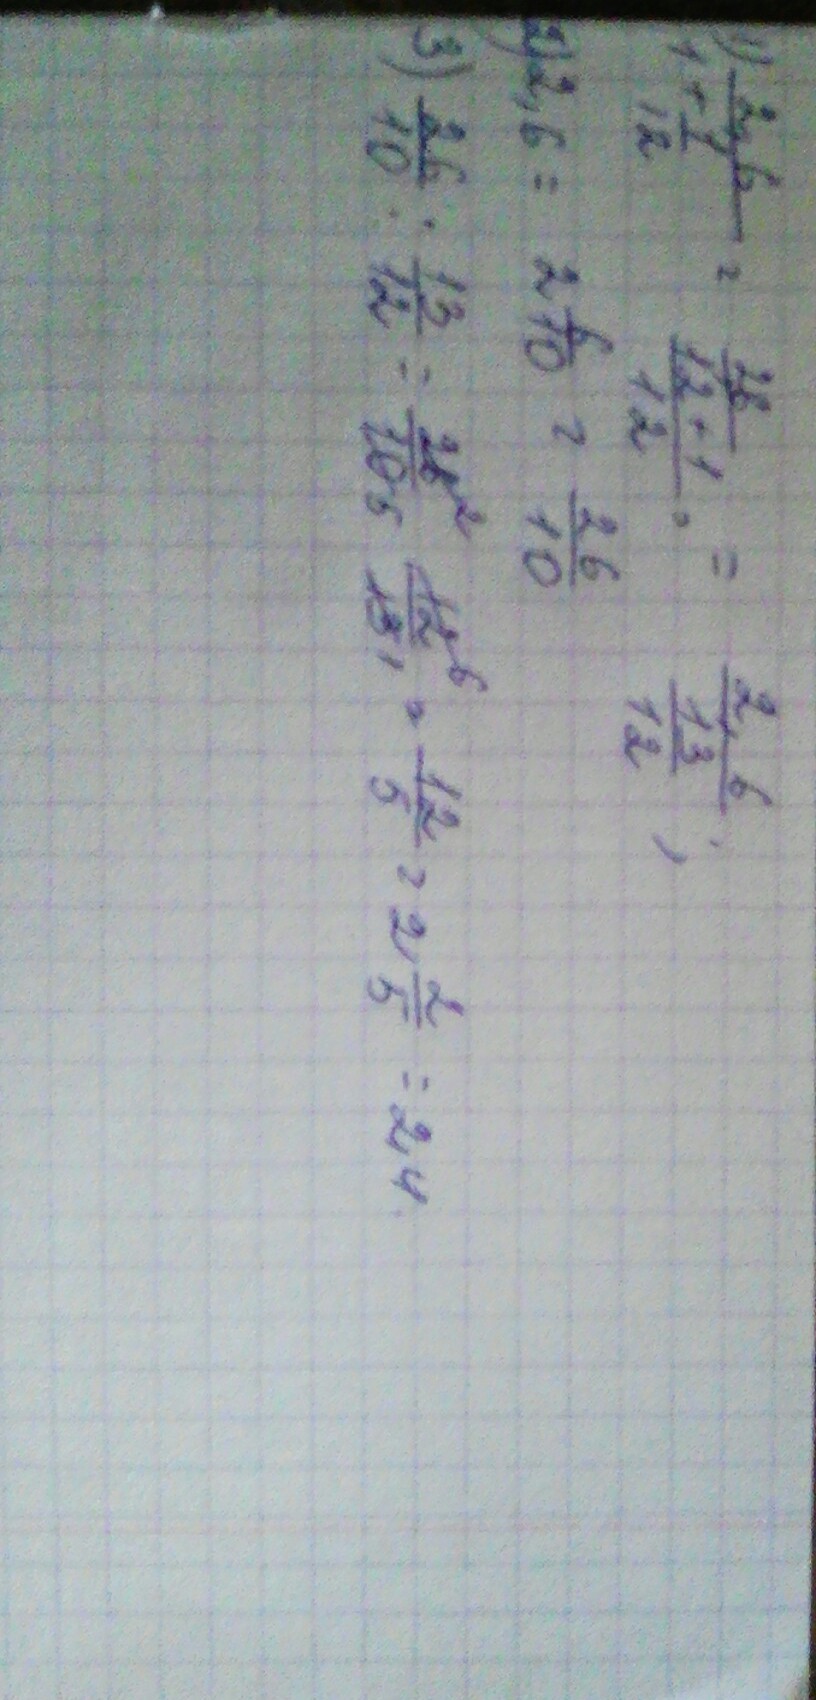 1) 2,6 / (1 + 1/12) = 26 / ((12+1)/12) = 2,6 / (13/12);
2) 2,6 = 2 6/10 = 26/10
3) 26/10 : 13/12 = 26 2/10 5 · 12 6/13 1 = 12/5 = 2 2/5 = 2 4.